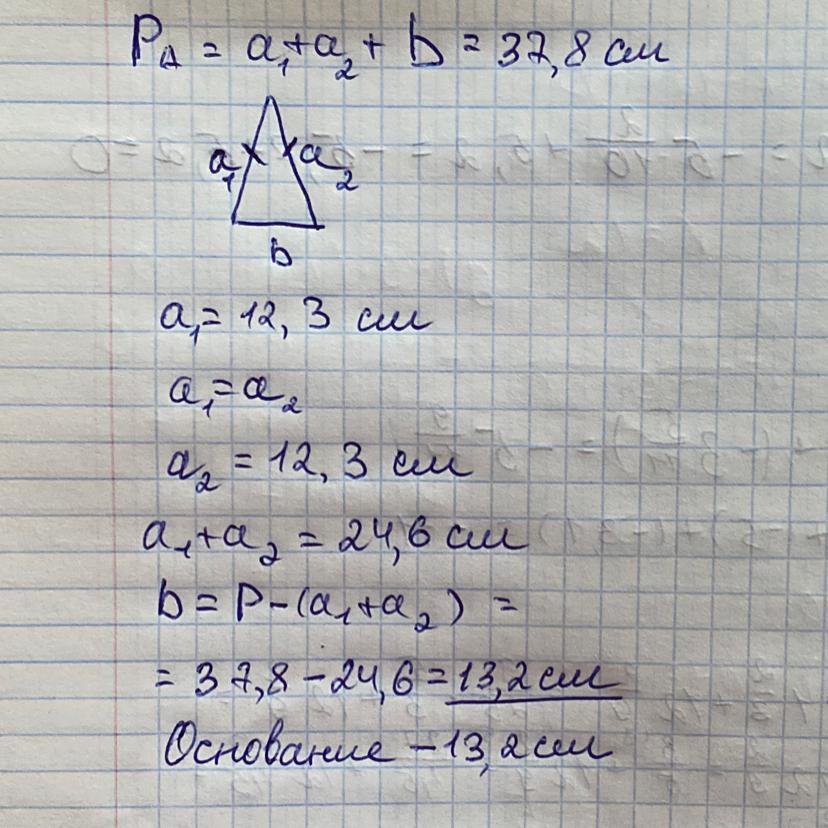 P△ = a₁+a₂ + b = 37,8 см
a₁ a₂
b
a₁= 12,3 см
a₁=a₂
a₂ = 12,3 см
a₁+a₂ = 24,6 см
b = P-(a₁+a₂) =
= 37,8 -24,6 = 13,2 см
Основание - 13,2 см